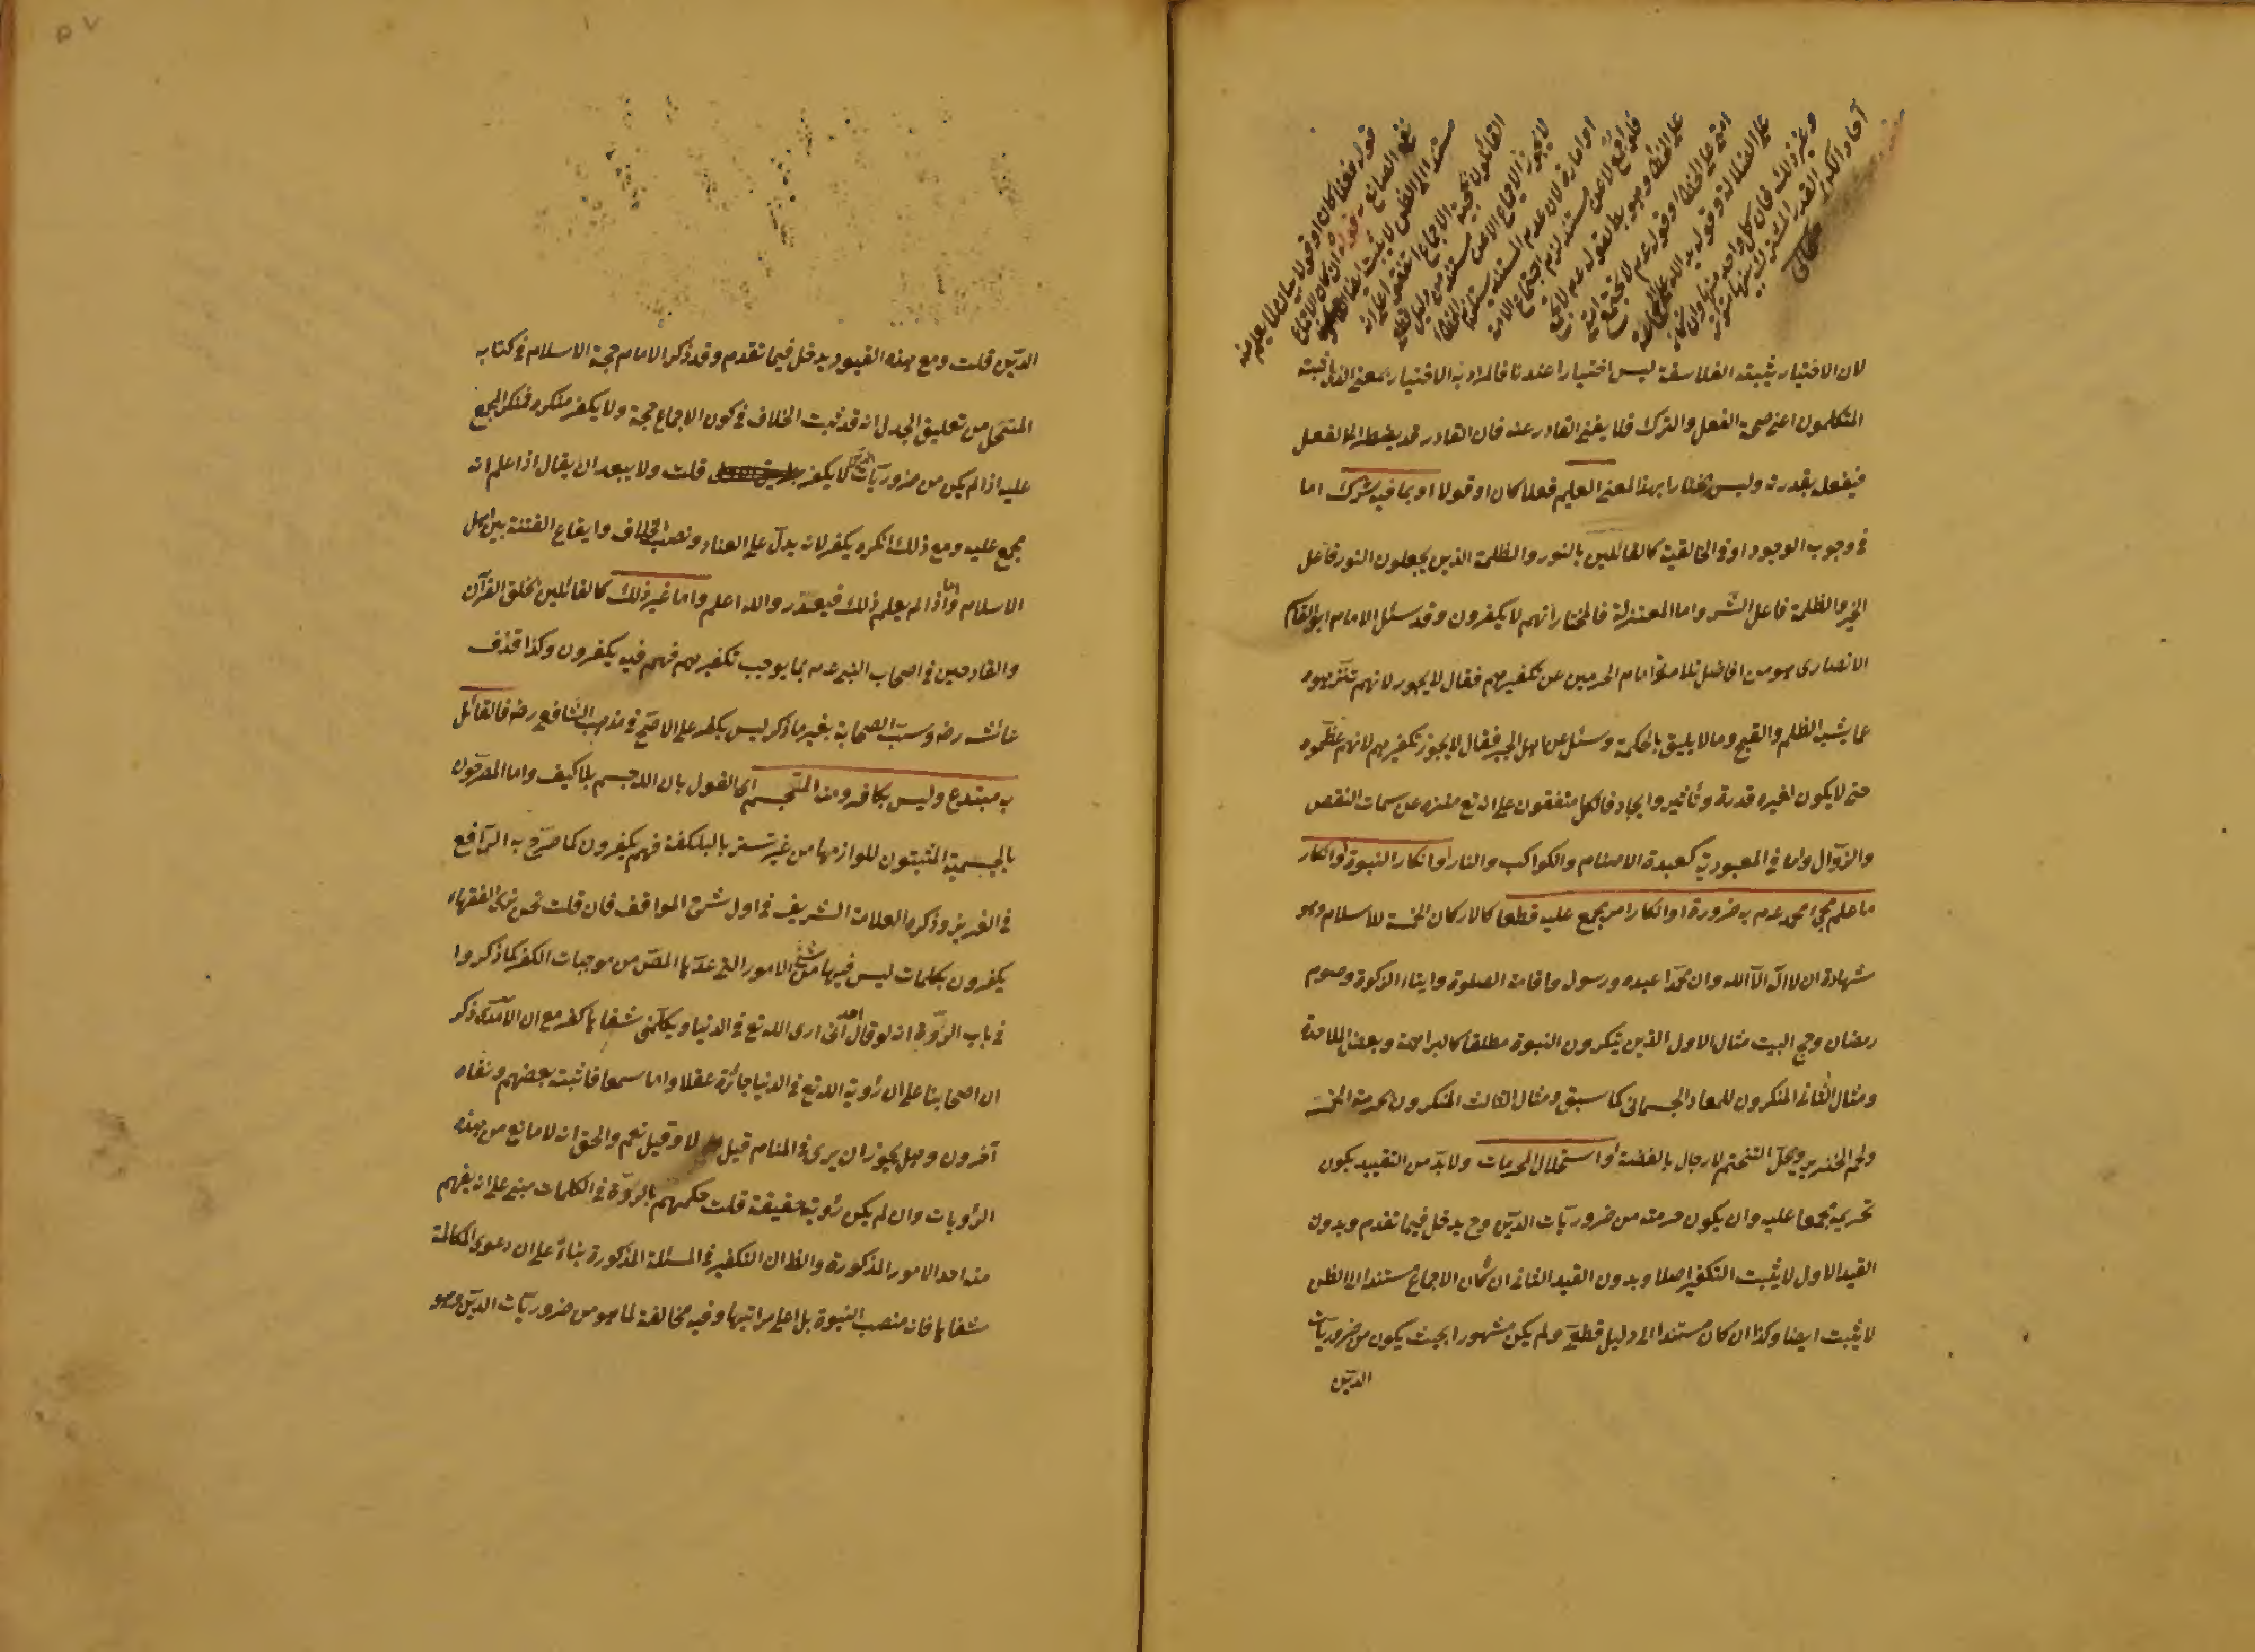 لان الاختيار يثبته الفلاسفة ليس اختيارا عندنا فالمراد به الاختيار بمعنى الذى اثبته
المتكلمون اعنى صحة الفعل والترك فلا يغنى القادر عنه فان القادر قد يضطر الى الفعل
فيفعل بقدرته وليس مختارا بهذا المعنى العليم فعلا كان او قولا او بما فيه شرك اما
فى وجوب الوجود او فى الخالقية كالقائلين بالنور والظلمة الذين يجعلون النور فاعل
الخير والظلمة فاعل الشر واما المعتزلة فالمختار انهم لا يكفرون وقد سئل الامام ابو القاسم
الانصارى هو من افاضل تلامذة امام الحرمين عن تكفيرهم فقال لا يجوز لانهم نزهوه
عما يشبه الظلم والقبح وما لا يليق بالحكمة وسئل عن اهل الجبر فقال لا يجوز تكفيرهم لانهم عظموه
حتى لا يكون لغيره قدرة وتأثير وايجاد فالكل متفقون على انه تع منزه عن سمات النقص
والزوال واما فى المعبودية كعبدة الاصنام والكواكب والنار او انكار النبوة او انكار
ما علم مجئ محمد عم به ضرورة او انكار امر مجمع عليه قطعا كالاركان الخمسة للاسلام وهو
شهادة ان لا اله الا الله وان محمدا عبده ورسوله واقامة الصلوة وايتاء الزكوة وصوم
رمضان وحج البيت مثال الاول الذين ينكرون النبوة مطلقا كالبراهمة وبعض الملاحدة
ومثال الثانى المنكرون للمعاد الجسمانى كما سبق ومثال الثالث المنكرون لحرمة الخمر
ولحم الخنزير وحل التختم للرجال بالفضة او استحلال المحرمات ولا بد من التقييد بكون
تحريمه مجمعا عليه وان يكون حرمته من ضروريات الدين وح يدخل فيما تقدم وبدون
القيد الاول لا يثبت التكفير اصلا وبدون القيد الثانى ان كان الاجماع مستندا الى الظن
لا يثبت ايضا وكذا ان كان مستندا الى دليل قطعى ولم يكن مشهورا بحيث يكون من ضروريات
الدين
الدين قلت ومع هذه القيود يدخل فيما تقدم وقد ذكر الامام حجة الاسلام فى كتابه
المنتحل من تعليق الجدل انه قد ثبت الخلاف فى كون الاجماع حجة ولا يكفر منكره فمنكر المجمع
عليه اذا لم يكن من ضروريات الدين لا يكفر قلت ولا يبعد ان يقال اذا علم انه
مجمع عليه ومع ذلك انكره يكفر لانه يدل على العناد ونصب الخلاف وايقاع الفتنة بين اهل
الاسلام واما اذا لم يعلم ذلك فيعذر والله اعلم واما غير ذلك كالقائلين بخلق القرآن
والقادحين فى اصحاب النبى عم بما يوجب تكفيرهم فهم فيه يكفرون وكذا قذف
عائشه رضه وسب الصحابة بغير ما ذكر ليس بكفر على الاصح فى مذهب الشافعى رضه فالقائل
به مبتدع وليس بكافر ومنه التجسم اى القول بان الله جسم بلا كيف واما المصرحون
بالجسمية المثبتون للوازمها من غير تستر بالبلكفة فهم يكفرون كما صرح به الرافعى
فى العزيز وذكره العلامة الشريف فى اول شرح المواقف فان قلت نحن نرى الفقهاء
يكفرون بكلمات ليس فيها شئ من الامور التى عدها المص من موجبات الكفر كما ذكروا
فى باب الردة انه لو قال احد انى ارى الله تع فى الدنيا ويكلمنى شفاها كفر مع ان الآمدى ذكر
ان اصحابنا على ان رؤية الله تع فى الدنيا جائزة عقلا واما سمعا فاثبته بعضهم ونفاه
آخرون وهل يجوز ان يرى فى المنام قيل لا وقيل نعم والحق انه لا مانع من هذه
الرؤيات وان لم يكن رؤية حقيقة قلت حكمهم بالردة فى الكلمات مبنى على انه يفهم
منه احد الامور المذكورة والظ ان التكفير فى المسئلة المذكورة بناء على ان دعوى المكالمة
شفاها فانه منصب النبوة بل اعلى مراتبها وفيه مخالفة لما هو من ضروريات الدين وهو